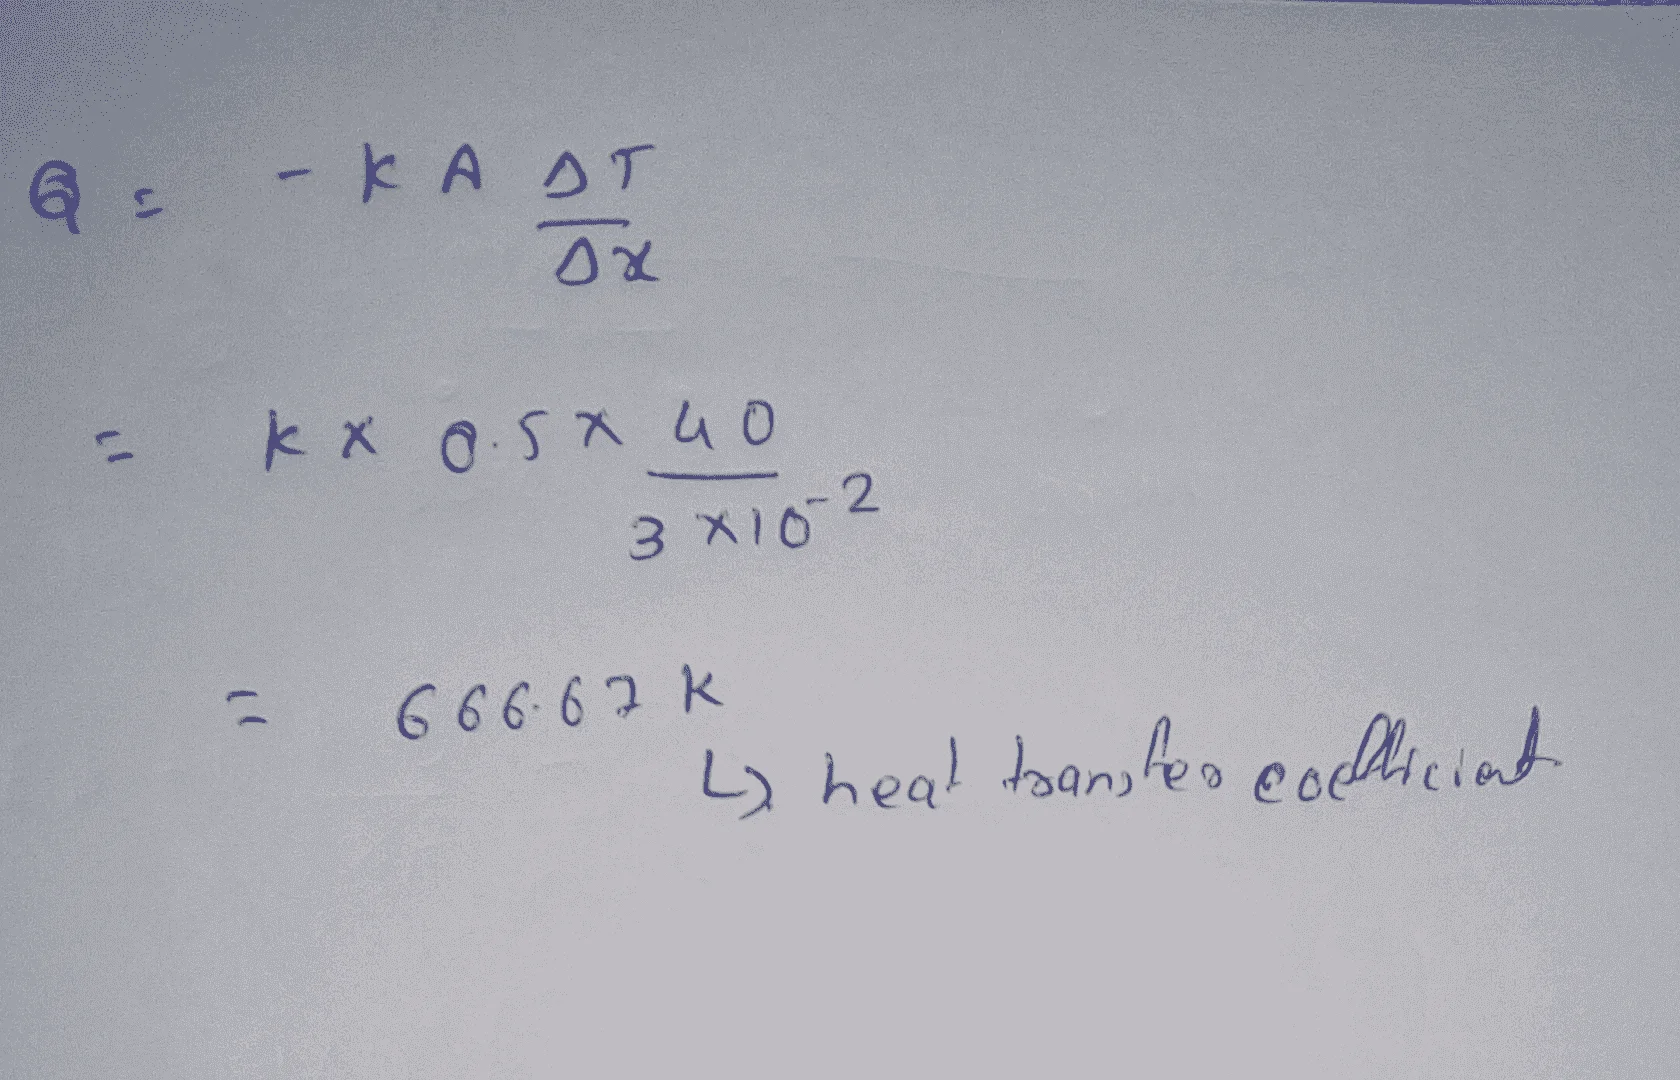 Q = - K A ΔT
Δx
= K x 0.5 x 40
3 x10-2
= 666.67 K
↳ heat transfer coefficient